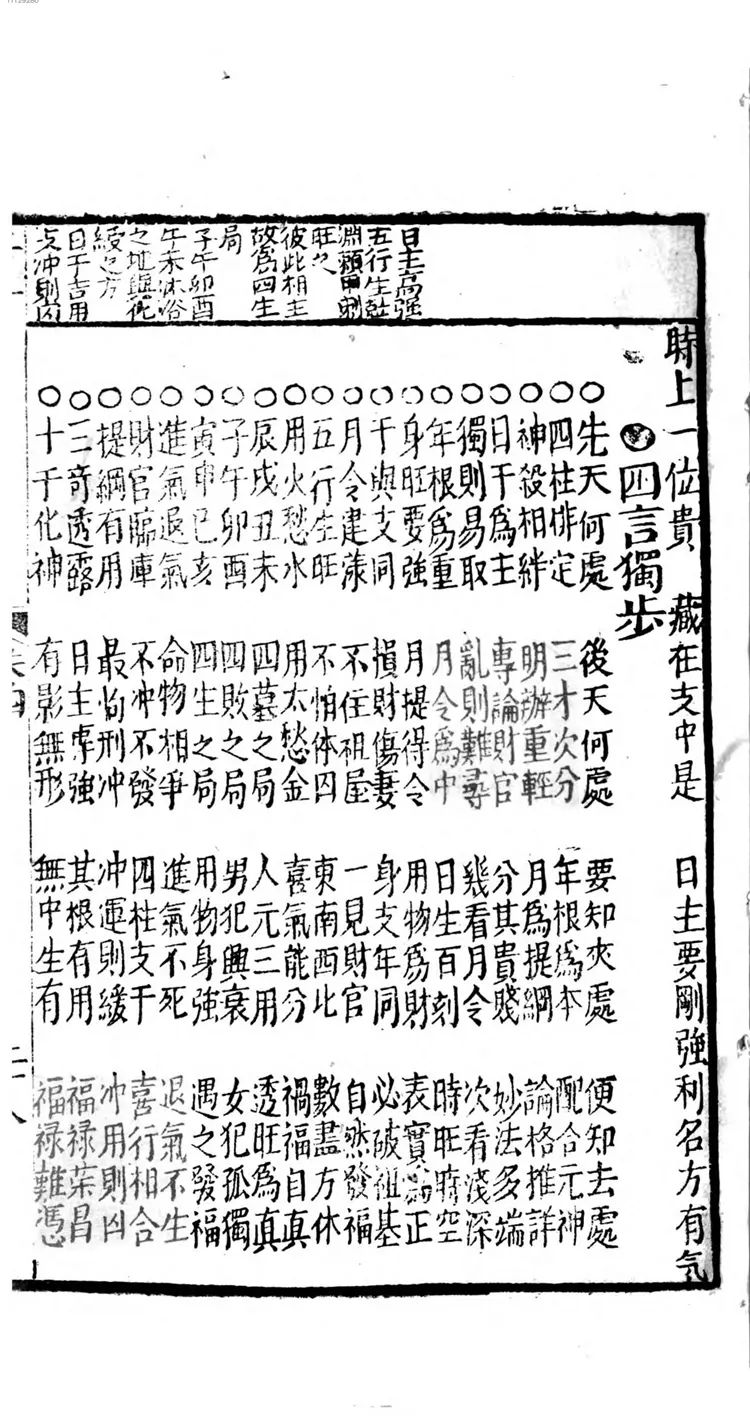 11129280
日主高強
五行生旺
旺之
彼此相主
故爲四生
局
子午卯酉
午未沐浴
之地與化
緩之方
日干吉用
支冲則凶
時上一位貴 藏在支中是 日主要剛強 利名方有氣
四言獨步
○先天何處 後天何處 要知來處 便知去處
○四柱排定 三才次分 年根爲本 配合元神
○神殺相絆 明辦重輕 月爲提綱 論格推詳
○日干爲主 專論財官 分其貴賤 妙法多端
○獨則易取 亂則難尋 幾看月令 次看淺深
○年根爲重 月令爲中 日生百刻 時旺時空
○身旺要強 月提得令 用物爲財 表實爲正
○干與支同 損財傷妻 身支年同 必破祖基
○月令建祿 不住祖屋 一見財官 自然發福
○五行生旺 不怕休囚 東南西北 數盡方休
○用火愁水 用木愁金 喜氣能分 禍福自真
○辰戌丑未 四墓之局 人元三用 透旺爲真
○子午卯酉 四敗之局 男犯興衰 女犯孤獨
○寅申巳亥 四生之局 用物身強 遇之發福
○進氣退氣 命物相爭 進氣不死 退氣不生
○財官臨庫 不冲不發 四柱支干 喜行相合
○提綱有用 最怕刑冲 冲運則緩 冲用則凶
○三奇透露 日主專強 其根有用 福祿荣昌
○十干化神 有影無形 無中生有 福祿難憑
二十八